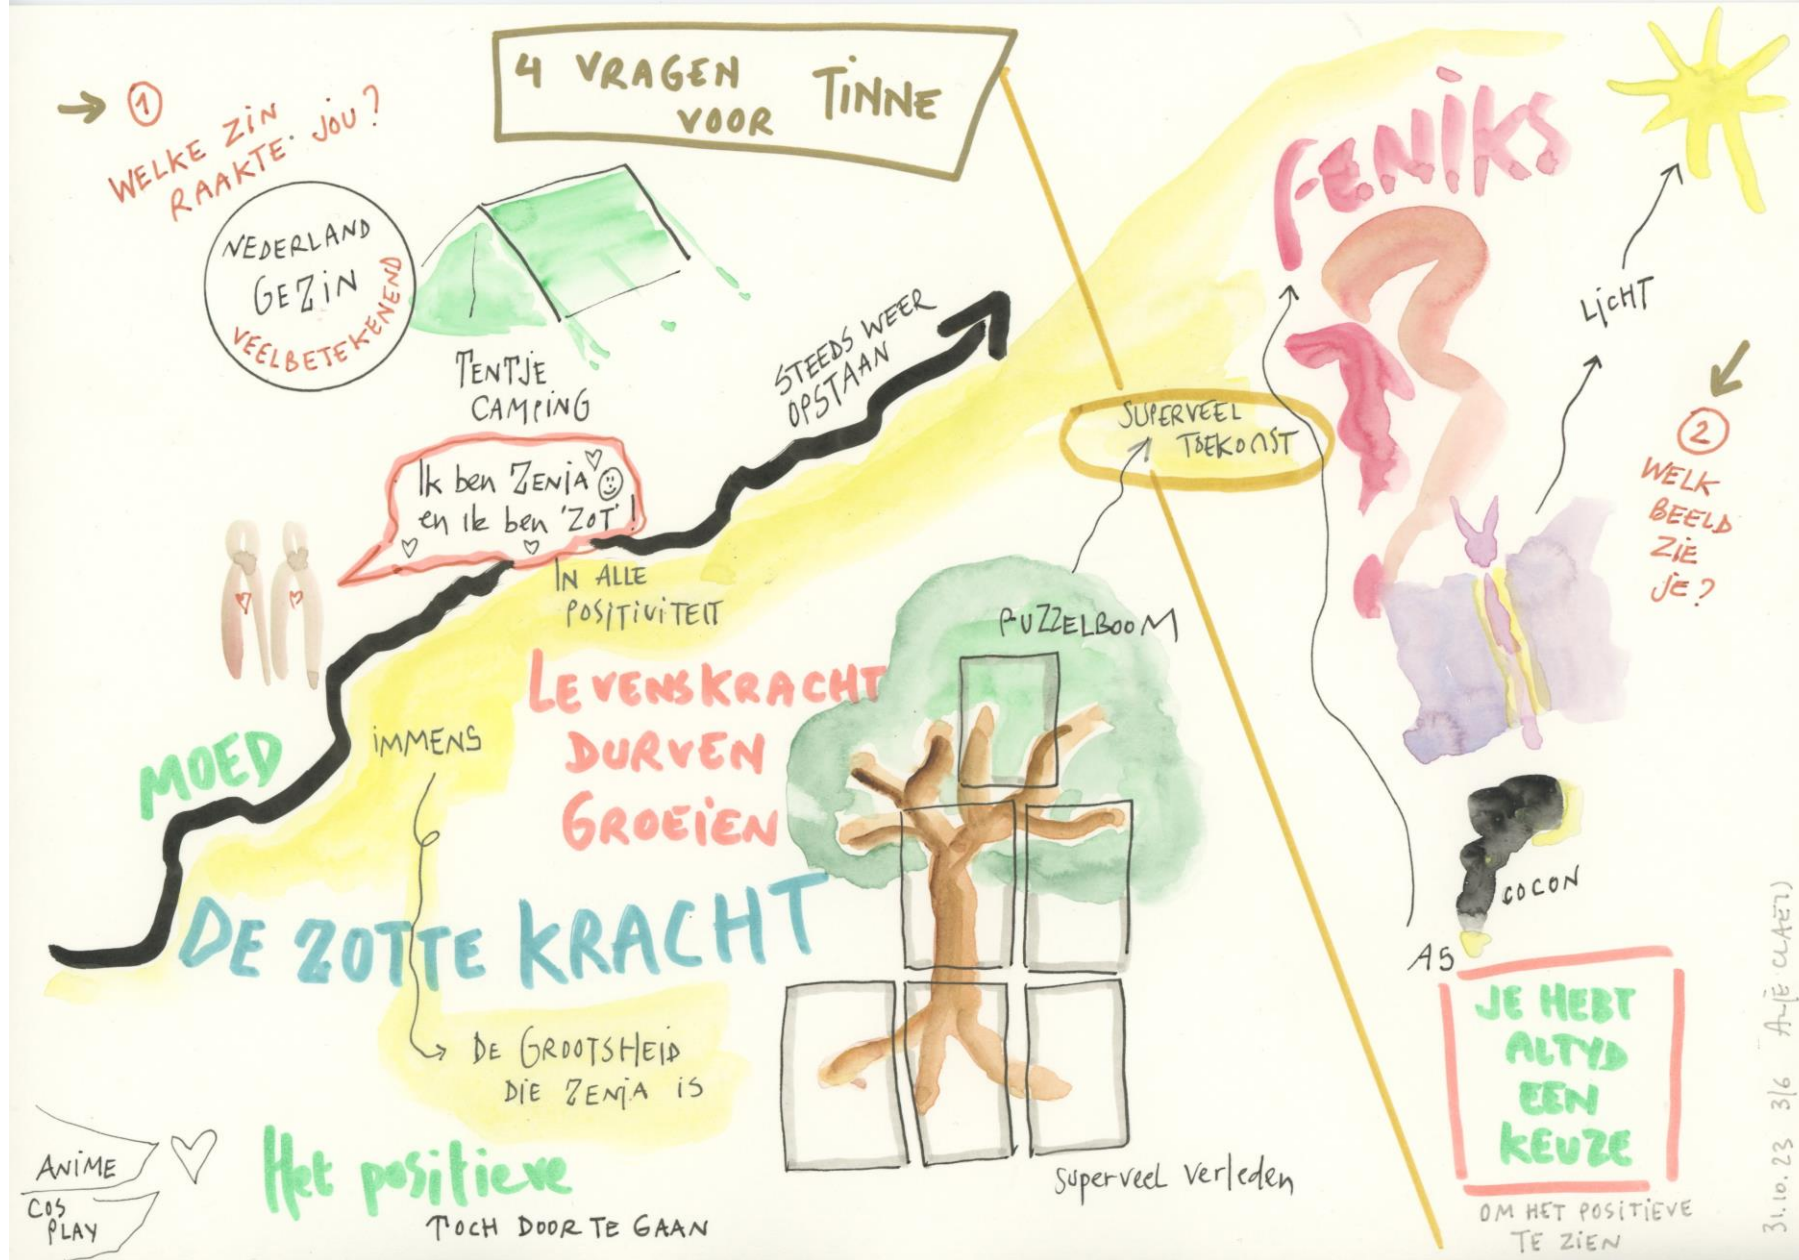 4 VRAGEN
VOOR TINNE
1
WELKE ZIN
RAAKTE JOU?
NEDERLAND
GEZIN
VEELBETEKENEND
TENTJE
CAMPING
STEEDS WEER
OPSTAAN
Ik ben ZENJA
en ik ben 'ZOT'!
IN ALLE
POSITIVITEIT
MOED
IMMENS
LEVENSKRACHT
DURVEN
GROEIEN
DE ZOTTE KRACHT
DE GROOTSHEID
DIE ZENJA IS
ANIME
COS
PLAY
Het positieve
TOCH DOOR TE GAAN
PUZZELBOOM
superveel verleden
SUPERVEEL
TOEKOMST
FENIKS
LICHT
2
WELK
BEELD
ZIE
JE?
COCON
AS
JE HEBT
ALTYD
EEN
KEUZE
OM HET POSITIEVE
TE ZIEN
31.10.23 3/6